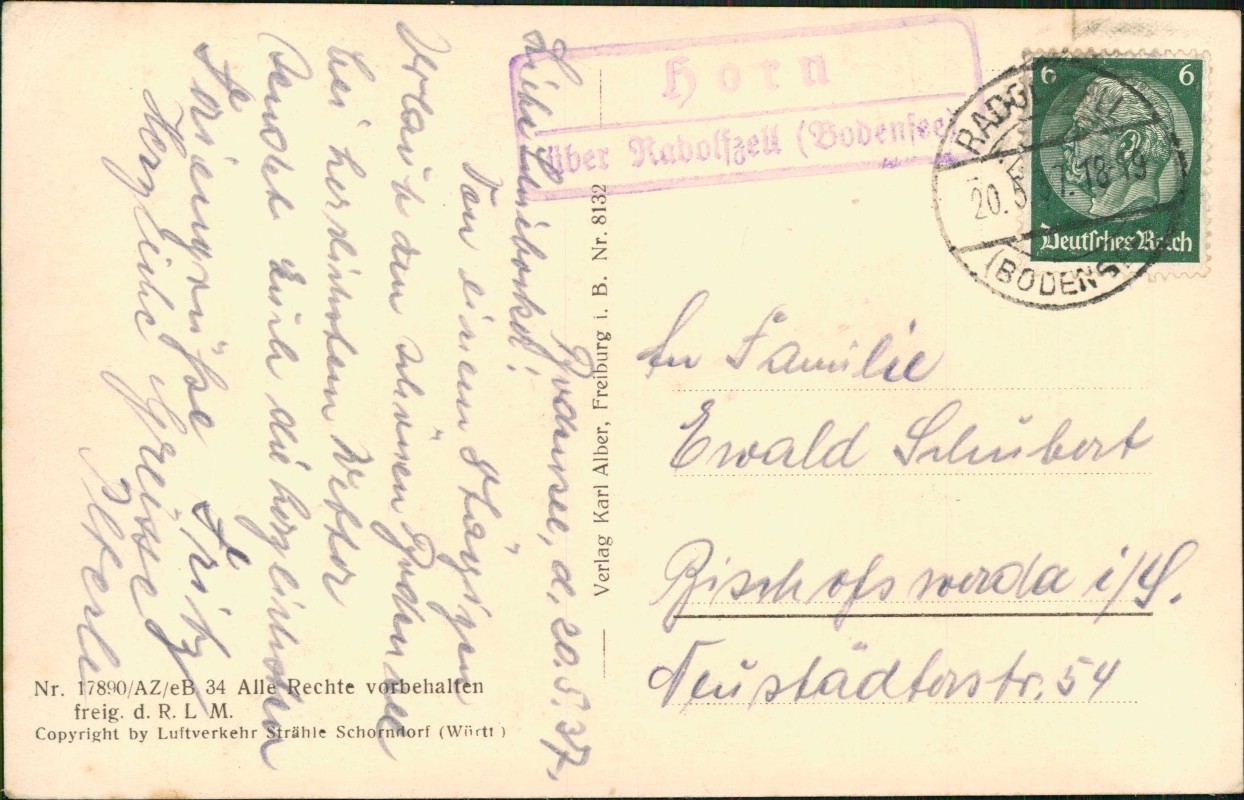 Horn
über Radolfzell (Bodensee)
RADOLFZELL
20.5.37.18-19
(BODENSEE)
6 6
Deutsches Reich
Bodensee, d. 20.5.37.
Liebe
Von einem
Urlaub am schönen Bodensee
bei herrlichstem Wetter
sendet Euch die herzlichsten
Feriengrüße Fritz
Herzliche Grüsse
An Familie
Ewald Schubert
Bischofswerda i/S.
Neustädterstr. 54
Verlag Karl Alber, Freiburg i. B. Nr. 8132
Nr. 17890/AZ/eB 34 Alle Rechte vorbehalten
freig. d. R. L M.
Copyright by Luftverkehr Strähle Schorndorf (Württ)